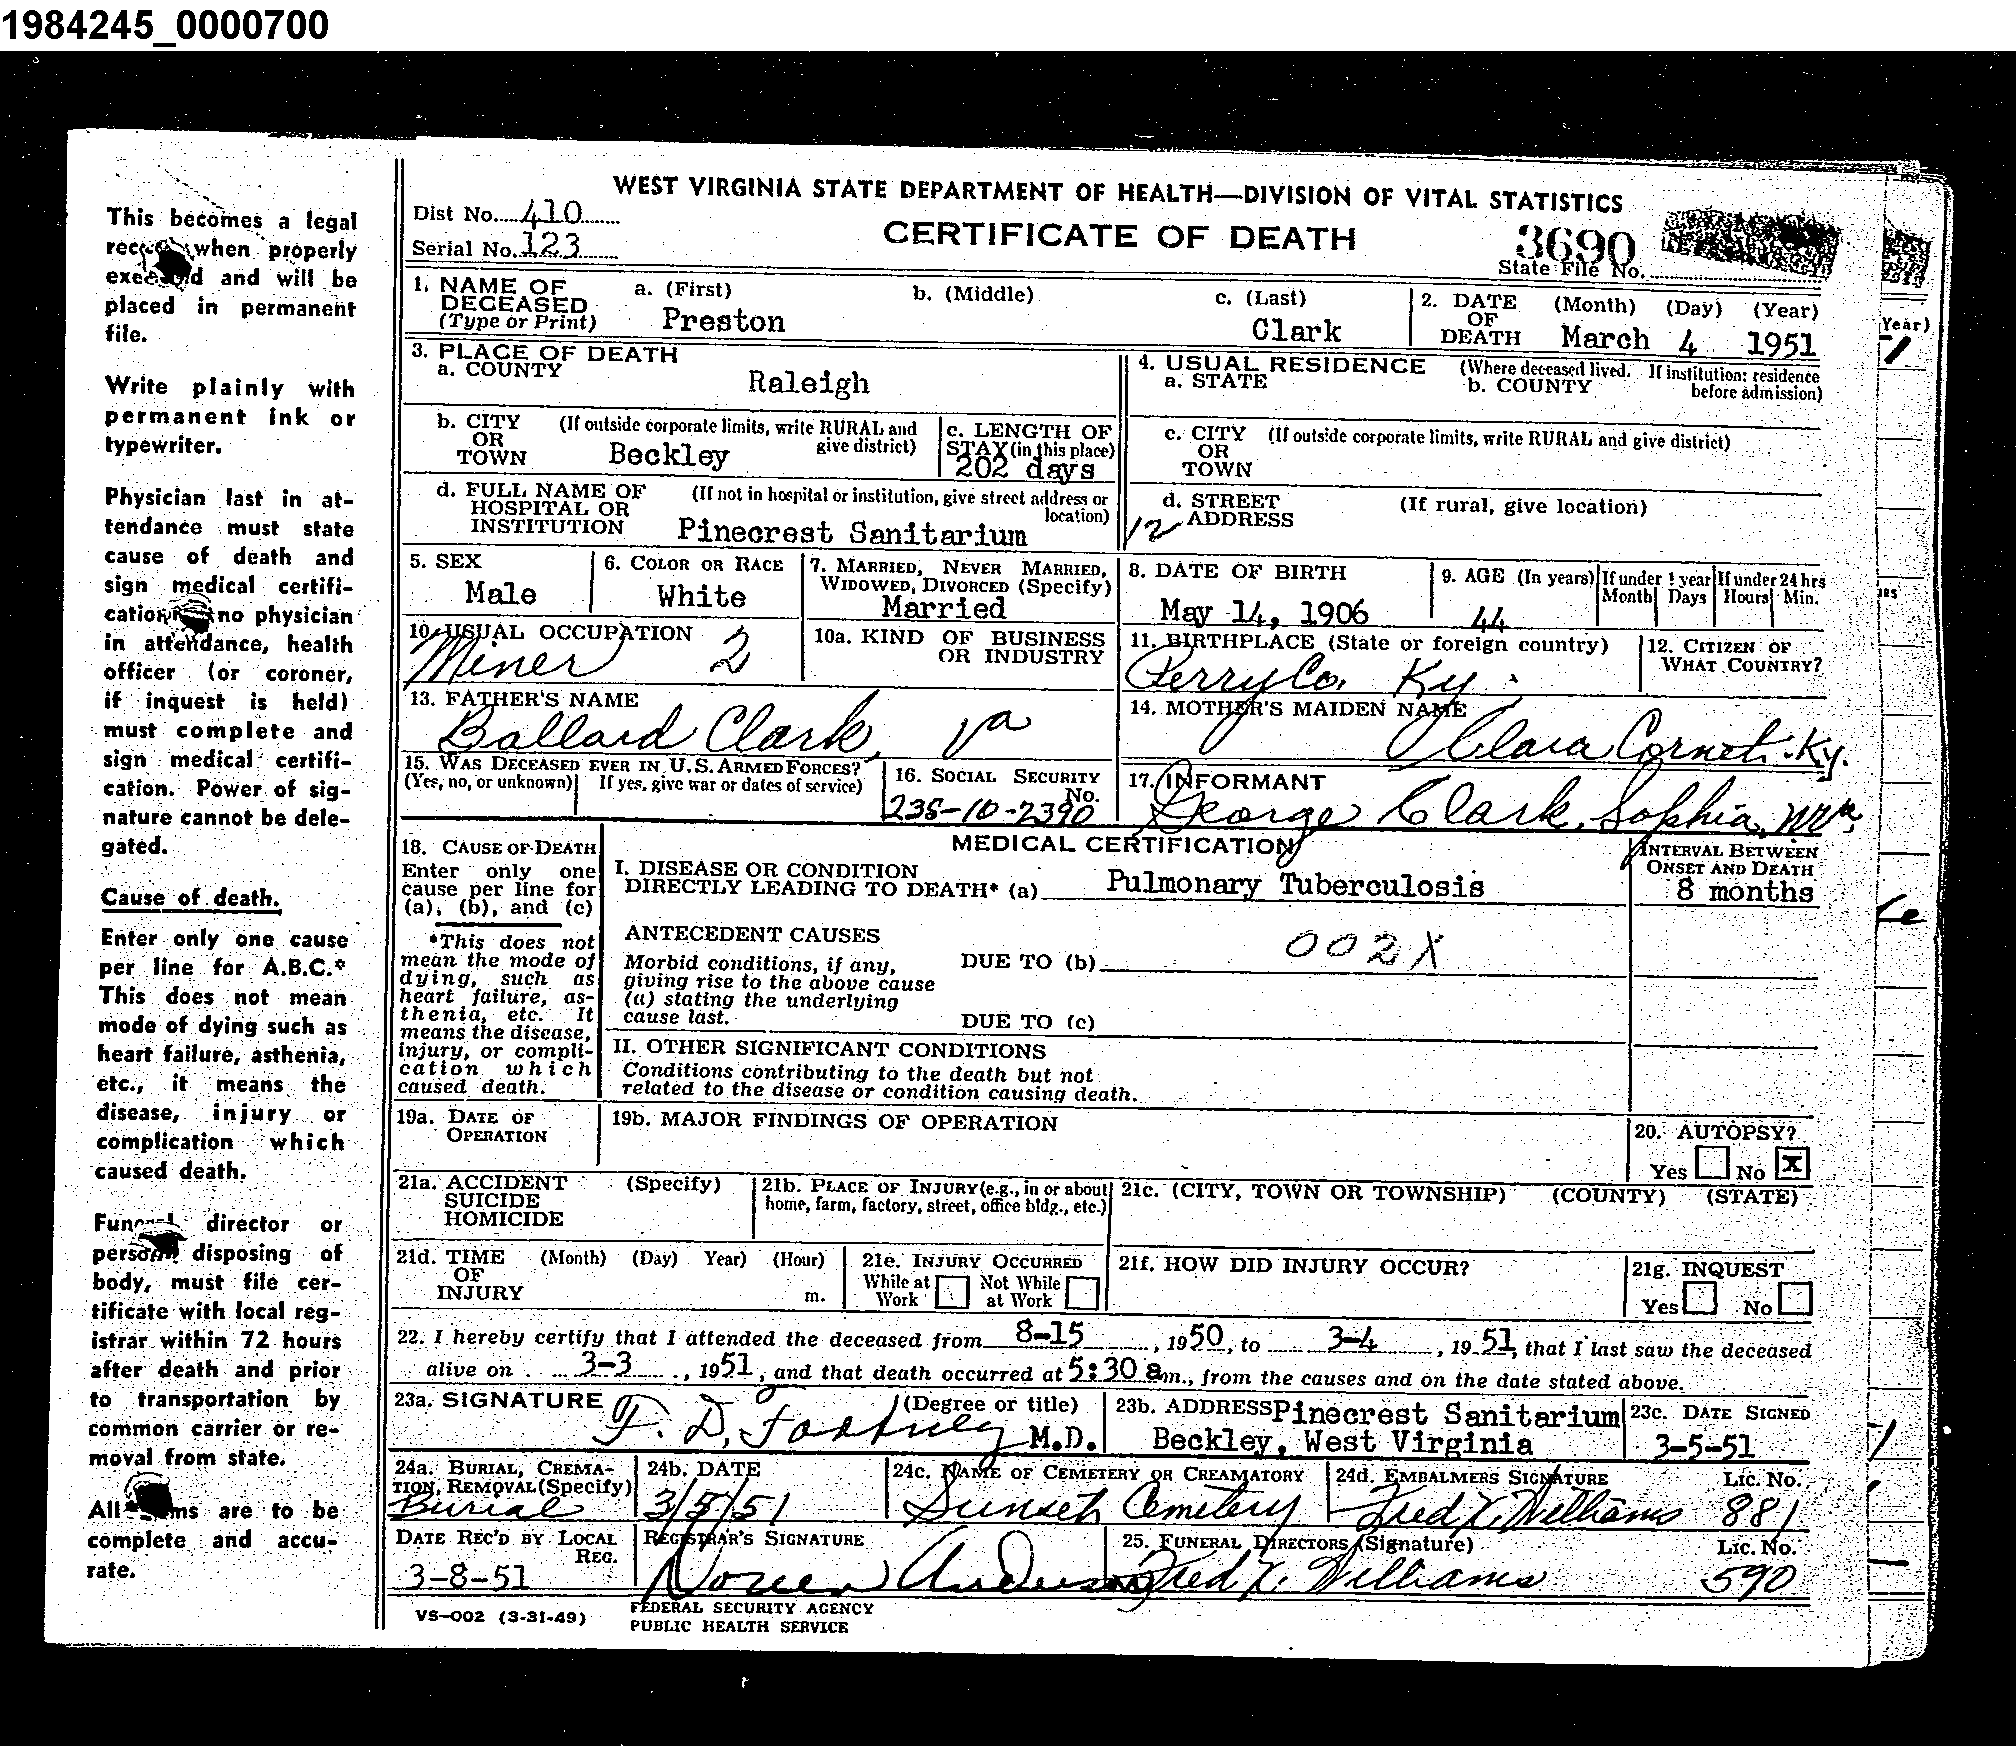 1984245_0000700
WEST VIRGINIA STATE DEPARTMENT OF HEALTH—DIVISION OF VITAL STATISTICS
CERTIFICATE OF DEATH
Dist No. 410
Serial No. 123
3690
State File No.
This becomes a legal
when properly
and will be
placed in permanent
file.
Write plainly with
permanent ink or
typewriter.
Physician last in at-
tendance must state
cause of death and
sign medical certifi-
no physician
in attendance, health
officer (or coroner,
if inquest is held)
must complete and
sign medical certifi-
cation. Power of sig-
nature cannot be dele-
gated.
Cause of death.
Enter only one cause
per line for A.B.C.*
This does not mean
mode of dying such as
heart failure, asthenia,
etc., it means the
disease, injury or
complication which
caused death.
director or
disposing of
body, must file cer-
tificate with local reg-
istrar within 72 hours
after death and prior
to transportation by
common carrier or re-
moval from state.
All are to be
complete and accu-
rate.
1. NAME OF DECEASED (Type or Print)
a. (First) Preston
b. (Middle)
c. (Last) Clark
2. DATE OF DEATH (Month) (Day) (Year)
March 4 1951
3. PLACE OF DEATH
a. COUNTY Raleigh
4. USUAL RESIDENCE (Where deceased lived. If institution: residence before admission)
a. STATE b. COUNTY
b. CITY OR TOWN (If outside corporate limits, write RURAL and give district)
Beckley
c. LENGTH OF STAY (in this place)
202 days
c. CITY OR TOWN (If outside corporate limits, write RURAL and give district)
d. FULL NAME OF HOSPITAL OR INSTITUTION (If not in hospital or institution, give street address or location)
Pinecrest Sanitarium
d. STREET ADDRESS (If rural, give location)
12
5. SEX
Male
6. COLOR OR RACE
White
7. MARRIED, NEVER MARRIED, WIDOWED, DIVORCED (Specify)
Married
8. DATE OF BIRTH
May 14, 1906
9. AGE (In years)
44
If under 1 year Month Days
If under 24 hrs Hours Min.
10. USUAL OCCUPATION
Miner 2
10a. KIND OF BUSINESS OR INDUSTRY
11. BIRTHPLACE (State or foreign country)
Perry Co. Ky.
12. CITIZEN OF WHAT COUNTRY?
13. FATHER'S NAME
Ballard Clark, Va
14. MOTHER'S MAIDEN NAME
Clara Cornet. Ky.
15. WAS DECEASED EVER IN U.S. ARMED FORCES?
(Yes, no, or unknown) If yes, give war or dates of service)
16. SOCIAL SECURITY No.
235-10-2390
17. INFORMANT
George Clark, Sophia, W.Va.
MEDICAL CERTIFICATION
18. CAUSE OF DEATH
Enter only one
cause per line for
(a), (b), and (c)
*This does not
mean the mode of
dying, such as
heart failure, as-
thenia, etc. It
means the disease,
injury, or compli-
cation which
caused death.
I. DISEASE OR CONDITION
DIRECTLY LEADING TO DEATH* (a) Pulmonary Tuberculosis
INTERVAL BETWEEN ONSET AND DEATH
8 months
ANTECEDENT CAUSES
Morbid conditions, if any,
giving rise to the above cause
(a) stating the underlying
cause last.
DUE TO (b) 002X
DUE TO (c)
II. OTHER SIGNIFICANT CONDITIONS
Conditions contributing to the death but not
related to the disease or condition causing death.
19a. DATE OF OPERATION
19b. MAJOR FINDINGS OF OPERATION
20. AUTOPSY?
Yes No X
21a. ACCIDENT SUICIDE HOMICIDE (Specify)
21b. PLACE OF INJURY (e.g., in or about home, farm, factory, street, office bldg., etc.)
21c. (CITY, TOWN OR TOWNSHIP) (COUNTY) (STATE)
21d. TIME OF INJURY (Month) (Day) Year) (Hour) m.
21e. INJURY OCCURRED
While at Work Not While at Work
21f. HOW DID INJURY OCCUR?
21g. INQUEST
Yes No
22. I hereby certify that I attended the deceased from 8-15, 1950, to 3-4, 1951, that I last saw the deceased
alive on 3-3, 1951, and that death occurred at 5:30 a m., from the causes and on the date stated above.
23a. SIGNATURE (Degree or title)
F. D. M.D.
23b. ADDRESS Pinecrest Sanitarium
Beckley, West Virginia
23c. DATE SIGNED
3-5-51
24a. BURIAL, CREMATION, REMOVAL (Specify)
Burial
24b. DATE
3/5/51
24c. NAME OF CEMETERY OR CREAMATORY
Sunset Cemetery
24d. EMBALMERS SIGNATURE Lic. No.
Fred X. Williams 881
DATE REC'D BY LOCAL REG.
3-8-51
REGISTRAR'S SIGNATURE
Anderson
25. FUNERAL DIRECTORS (Signature) Lic. No.
Fred X. Williams 590
VS-002 (3-31-49)
FEDERAL SECURITY AGENCY
PUBLIC HEALTH SERVICE
Year)